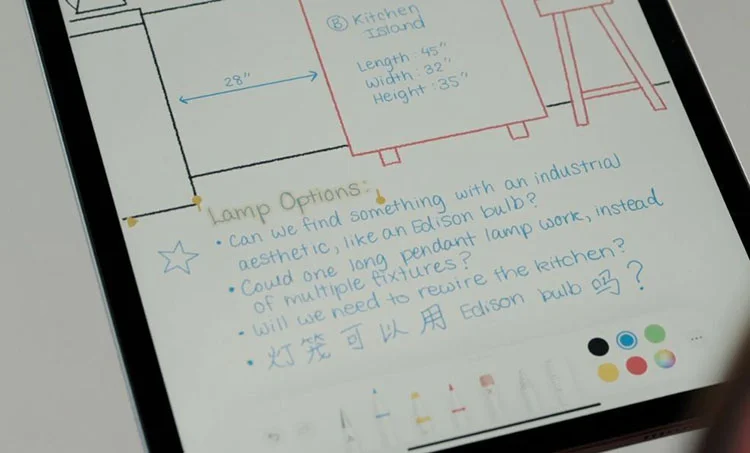 28"
Ⓑ Kitchen
Island
Length: 45"
Width: 32"
Height: 35"
Lamp Options:
• Can we find something with an industrial
aesthetic, like an Edison bulb?
• Could one long pendant lamp work, instead
of multiple fixtures?
• Will we need to rewire the kitchen?
• 灯笼可以用 Edison bulb 吗?